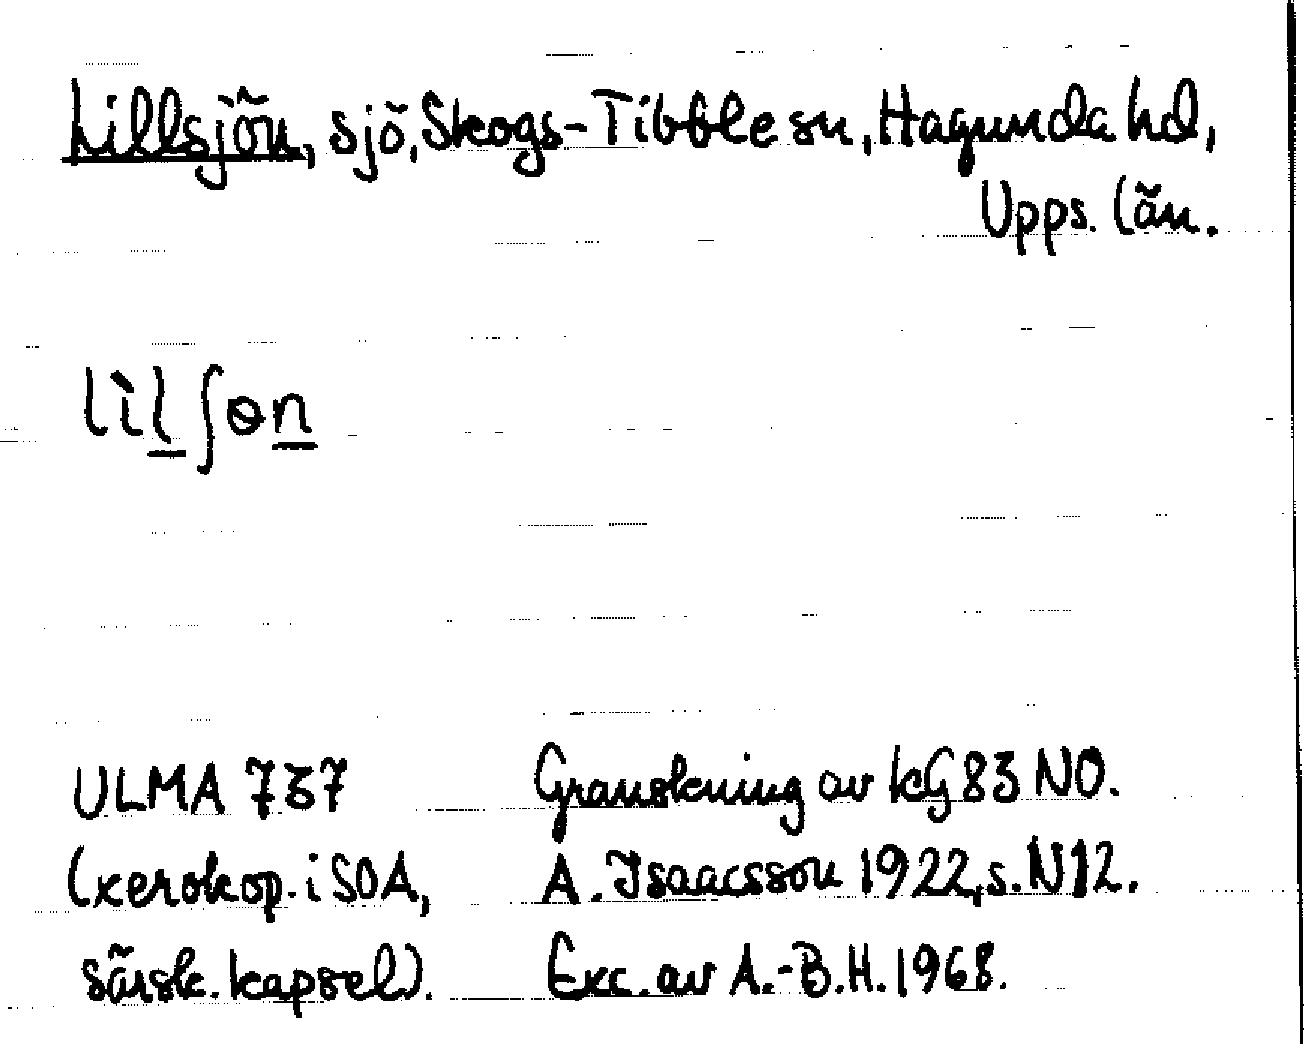 Lillsjön, sjö, Skogs-Tibble sn, Hagunda hd,
Upps. län.
lìl̲ʃɵn̲
ULMA 737 Granskning av kG 83 NO.
(xerokop. i SOA, A. Isaacsson 1922, s. N12.
särsk. kapsel). Exc. av A.-B.H. 1968.